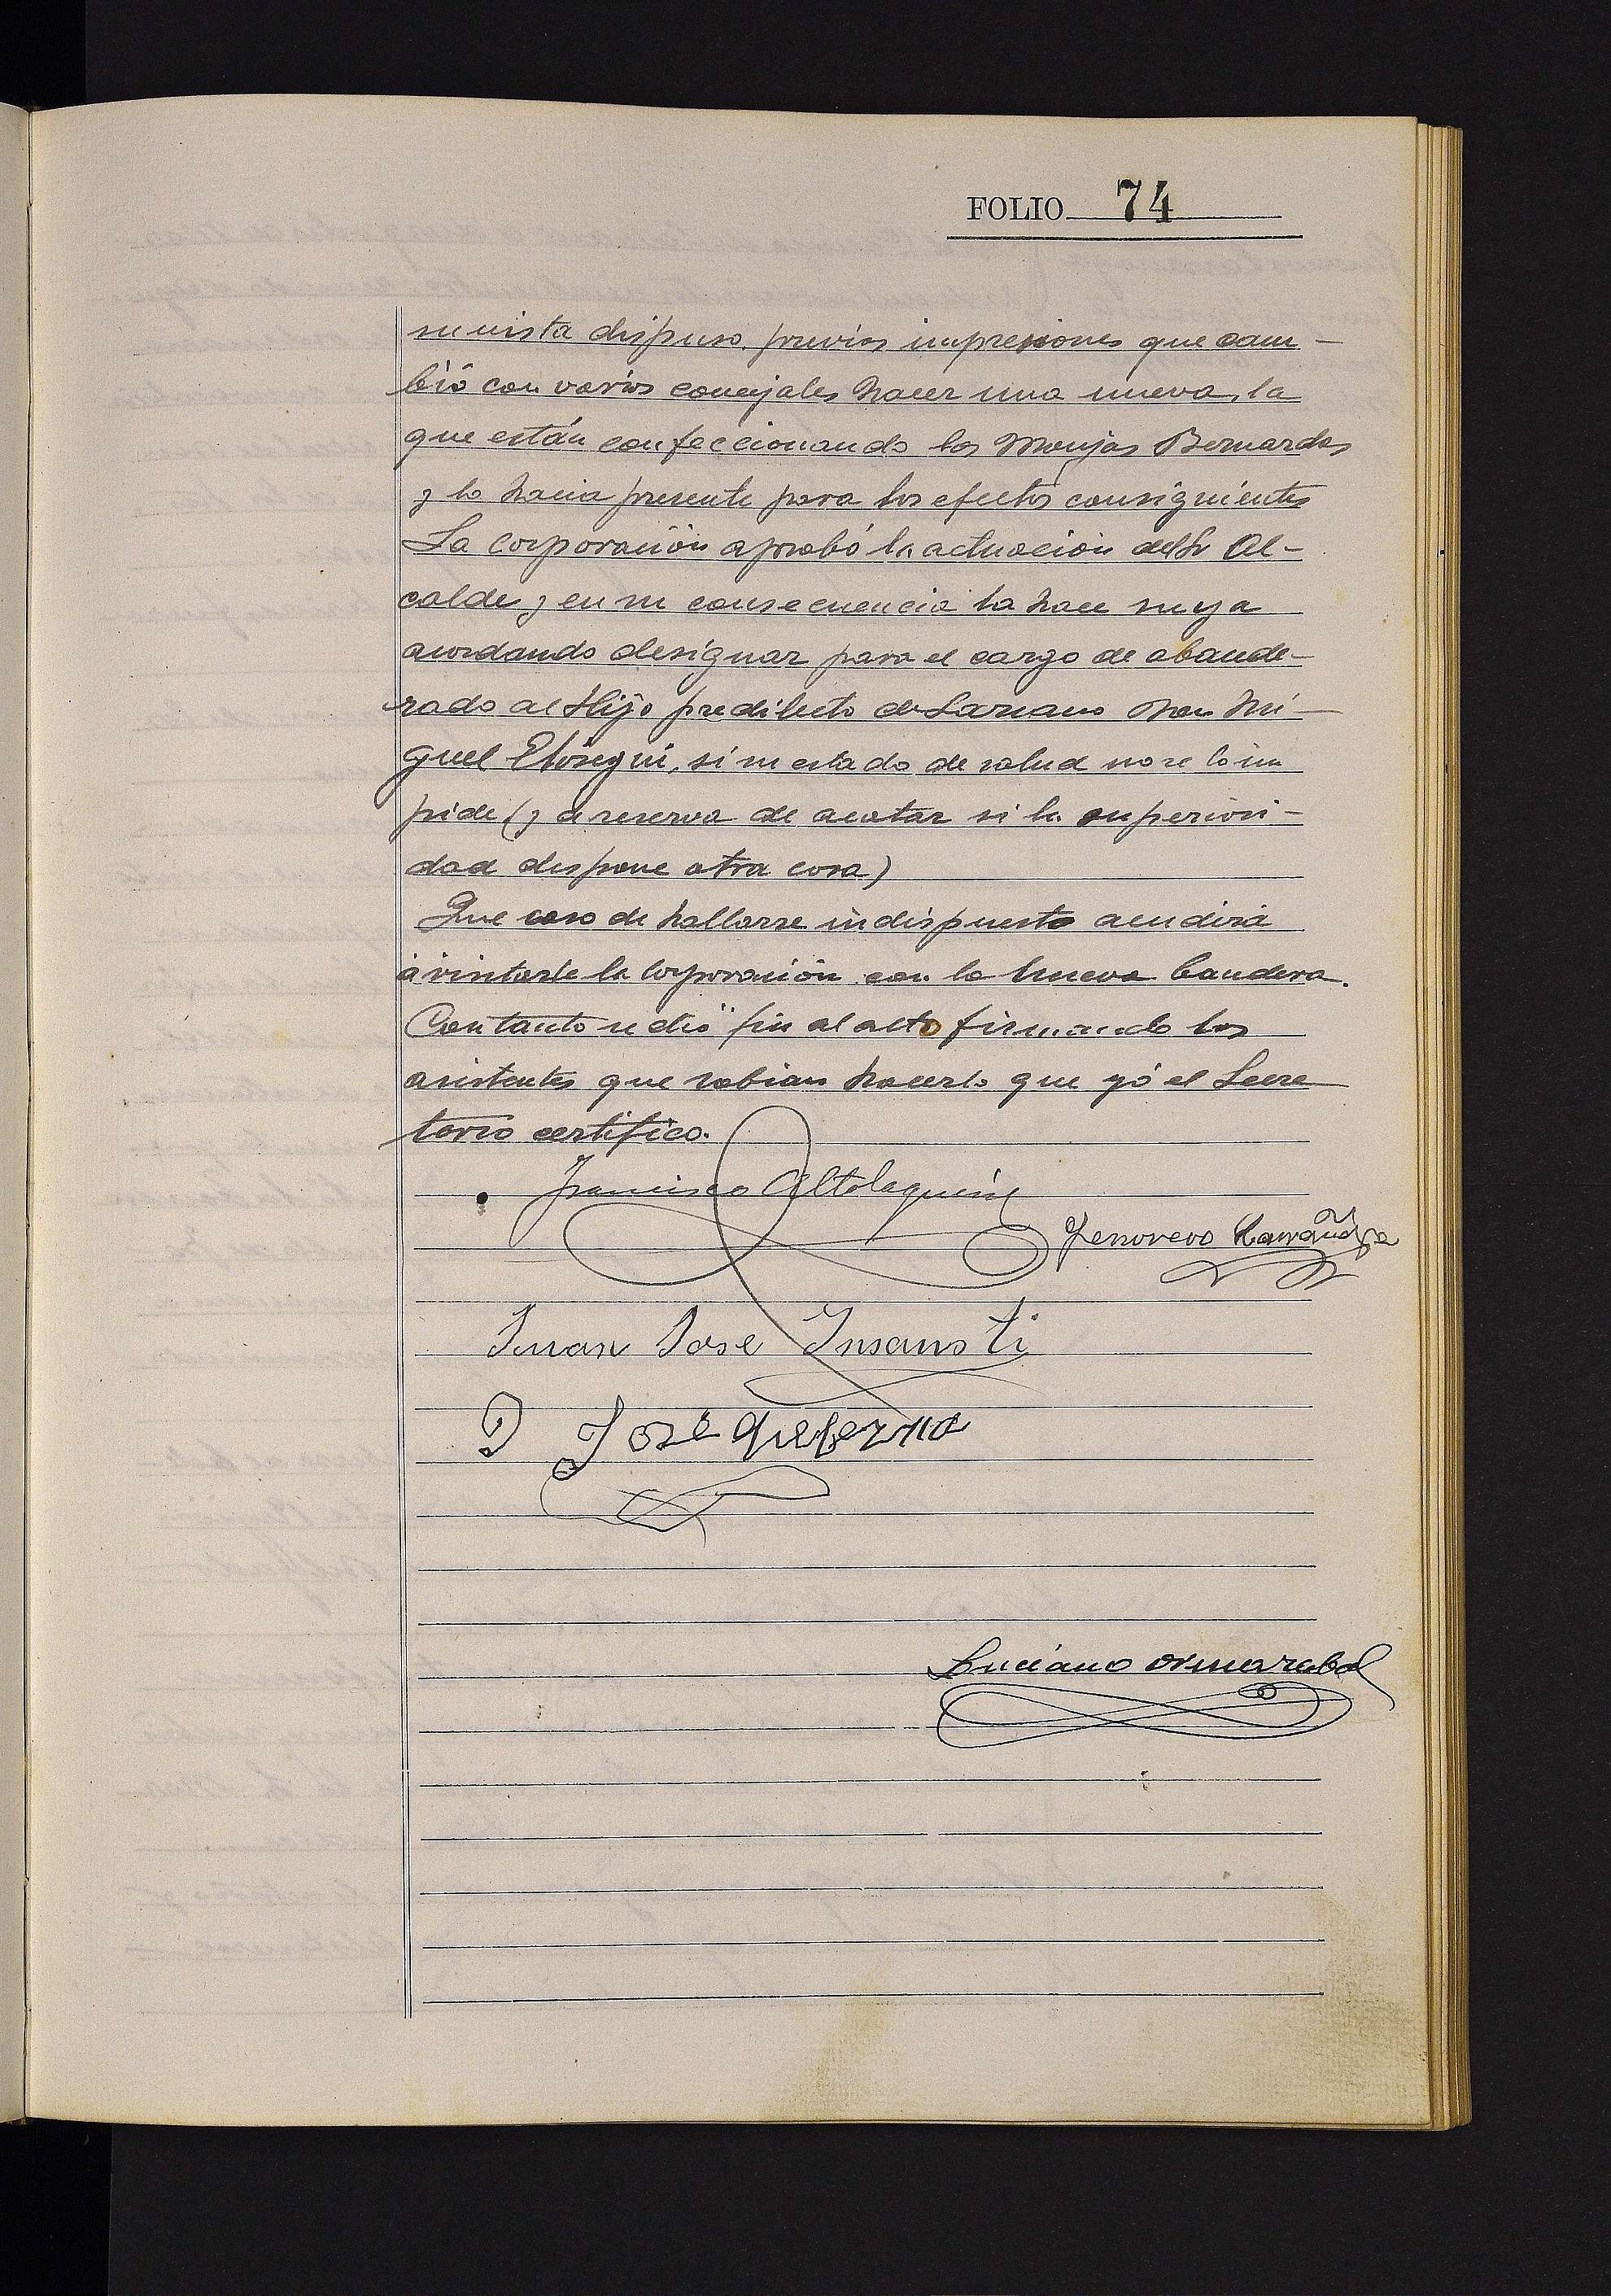 FOLIO 74
su vista dispuso, previas impresiones que cam-
bió con varios concejales hacer una nueva, la
que están confeccionando las Monjas Bernardas
y lo hacia presente para los efectos consiguientes
La corporación aprobó la actuación del Sr Al-
calde y en su consecuencia la hace suya
acordando designar para el cargo de abande-
rado al Hijo predilecto de Lazcano Don Mi-
guel Elósegui, si su estado de salud no se lo im
pide (y a reserva de acatar si la superiori-
dad dispone otra cosa)
Que caso de hallarse indispuesto acudirá
á visitarle la Corporación con la nueva bandera.
Con tanto se dió fin al acto firmando los
asistentes que sabian hacerlo que yó el Secre
tario certifico.
Francisco Altolaguirre
Genoveva Larrañaga
Juan Jose Insausti
José
Luciano Ormazabal